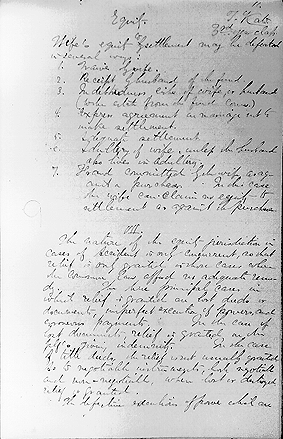 Equity
T. Kato
3rd year class
Wife's equity of settlement may be defeated
in several ways:
1. Waiver of wife.
2. Receipt by husband of the fund
3. Indebtedness, either of wife or husband
4. Express agreement on marriage not to
make settlement.
5. Adequate settlement
6. Adultery of wife, unless the husband
also lives in adultery.
7. Fraud committed by the wife as ag-
ainst a purchaser. In this case
the wife can claim no equity to
settlement as against the purchaser
VII.
The nature of the equity jurisdiction in
cases of accident is only concurrent, so that
relief is only granted in those cases where
the common law affords no adequate reme-
dy. The three principal cases in
which relief is granted are lost deeds or
documents, imperfect execution of powers, and
erroneous payments. In the case of
lost documents, relief is granted on the
giving indemnity. In the case
of lost deeds, the relief most usually granted
is to negotiable instruments, both negotiable
and non-negotiable, when lost or destroyed
relief is granted.
The defective execution of power which are